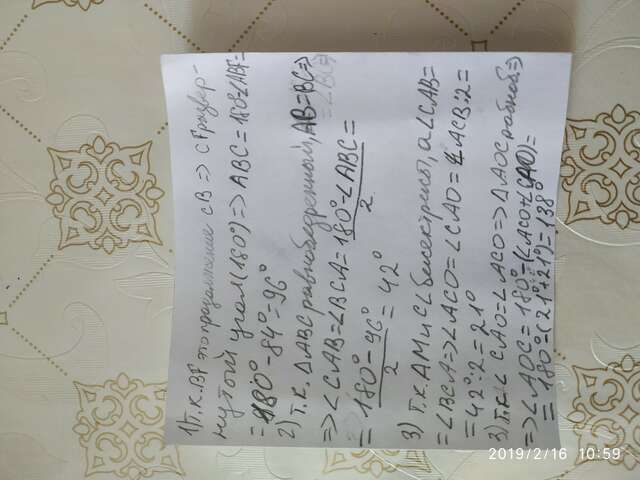 1) Т.К. BF это продолжение CB => CF развер-
нутый угол (180°) => ABC = 180°-∠ABF =
= 180° - 84° = 96°
2) Т.К. △ABC равнобедренный, AB=BC =>
=> ∠CAB = ∠BCA = 180° - ∠ABC / 2 =
= 180° - 96° / 2 = 42°
3) Т.К. AM и CL биссектрисы, а ∠CAB =
= ∠BCA => ∠ACO = ∠CAO = ∠ACB : 2 =
= 42° : 2 = 21°
3) Т.К. ∠CAO = ∠ACO => △AOC равноб =>
=> ∠AOC = 180° - (∠ACO + ∠CAO) =
= 180° - (21° + 21°) = 138°
2019/2/16 10:59